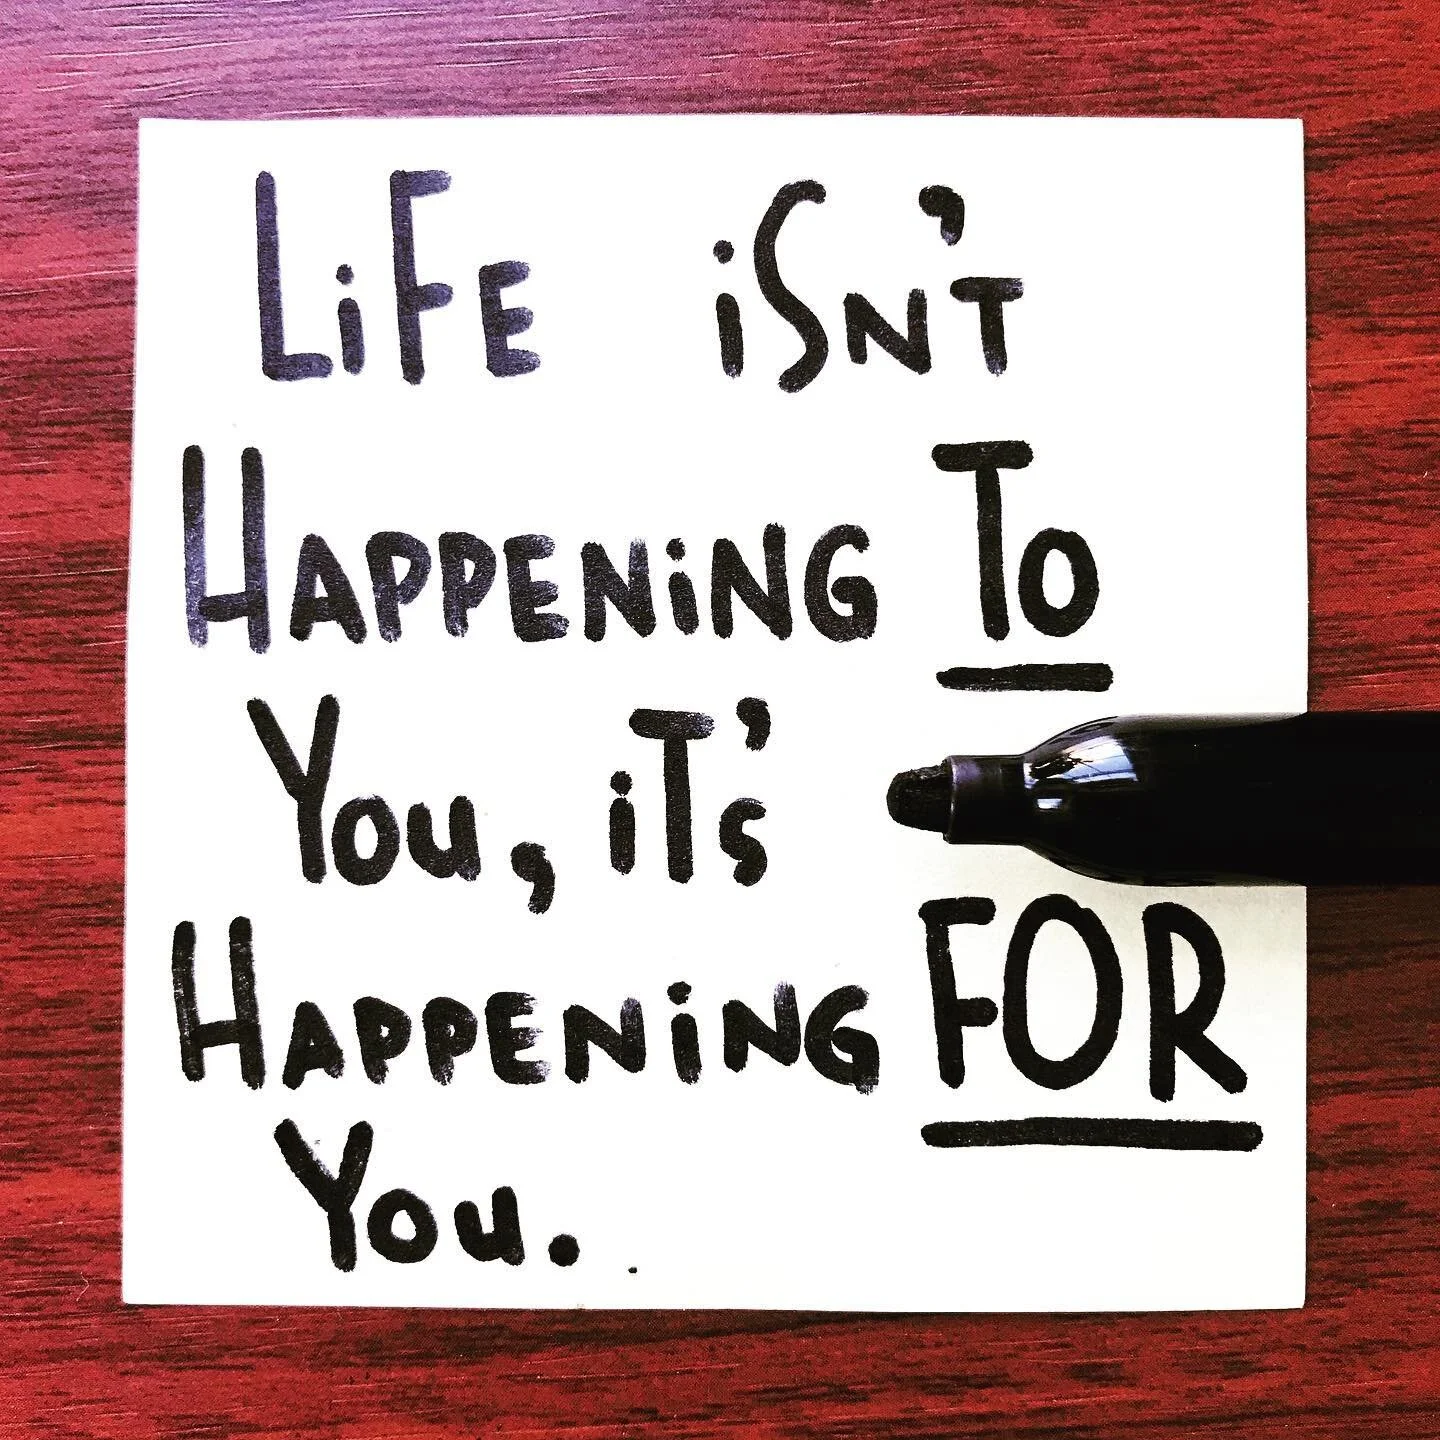 LiFE iSN'T
HAPPENiNG To
You, iT's
HAPPENiNG FOR
You.